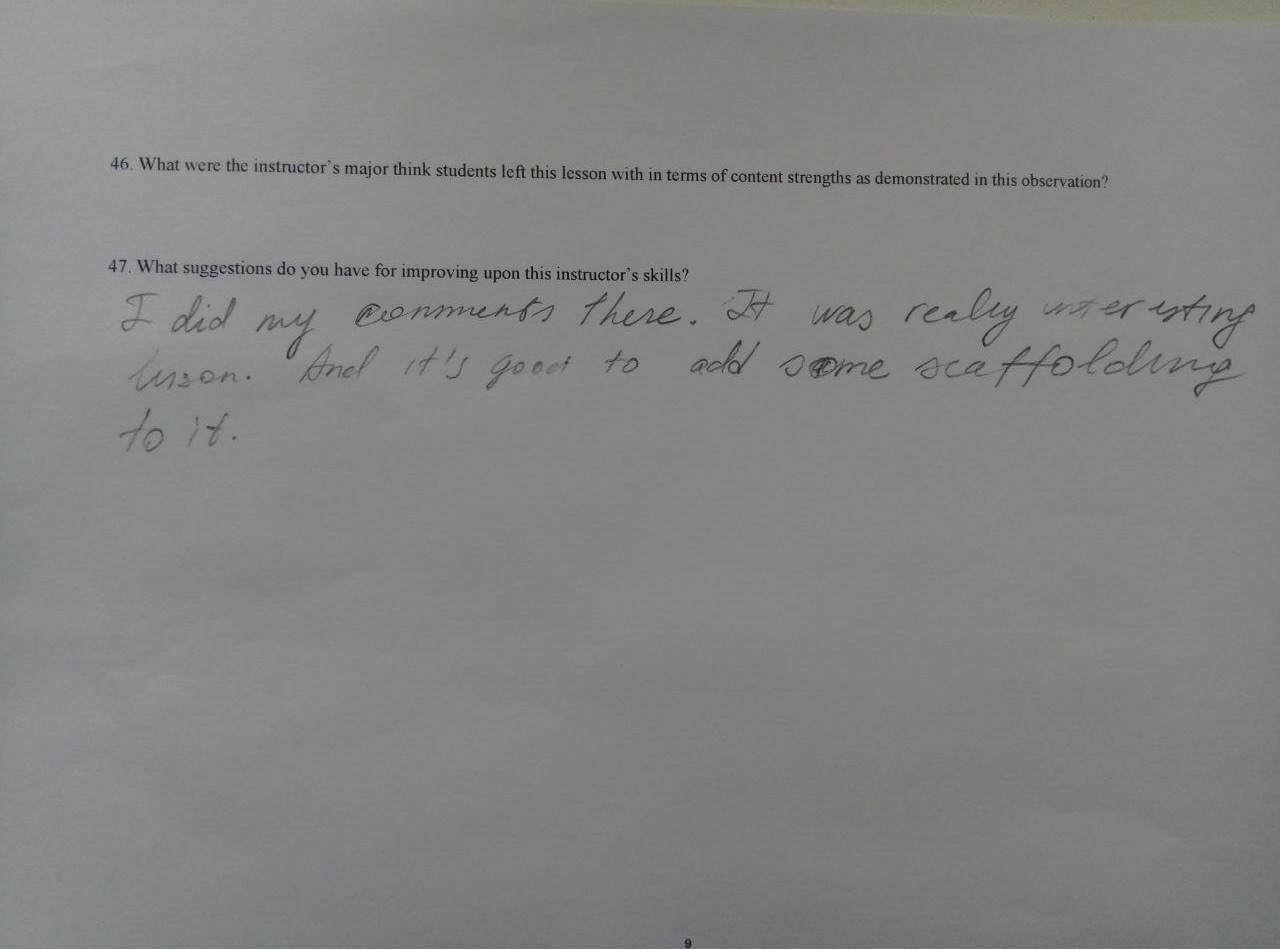 46. What were the instructor's major think students left this lesson with in terms of content strengths as demonstrated in this observation?
47. What suggestions do you have for improving upon this instructor's skills?
I did my comments there. It was realy interesting
lesson. And it's good to add some scaffolding
to it.
9